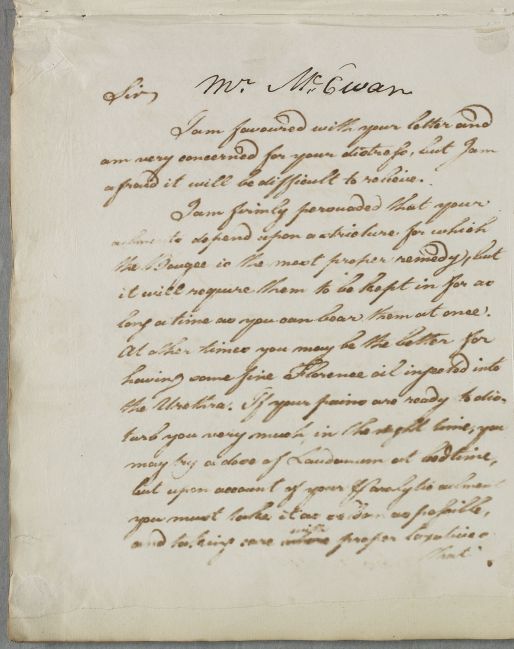 Mr. McEwan
Sir
I am favoured with your letter and
am very concerned for your distress, but I am
afraid it will be difficult to relieve.
I am firmly persuaded that your
ailments depend upon a stricture for which
the Bougee is the most proper remedy, but
it will require them to be kept in for as
long a time as you can bear them at once.
At other times you may be the better for
having some fine Florence oil injected into
the Urethra. If your pains are ready to dis-
turb you very much in the night time, you
may try a dose of Laudanum at bedtime,
but upon account of your Paralytic ailment
you must take it as seldom as possible,
and taking care with proper laxatives
that